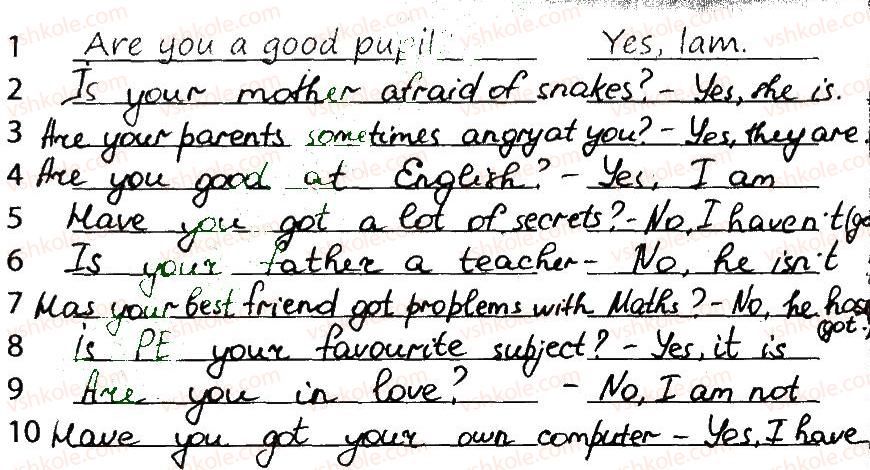 1 Are you a good pupil Yes, I am.
2 Is your mother afraid of snakes? - Yes, she is.
3 Are your parents sometimes angry at you? - Yes, they are.
4 Are you good at English? - Yes, I am
5 Have you got a lot of secrets? - No, I haven't (go
6 Is your father a teacher - No, he isn't
7 Has your best friend got problems with Maths? - No, he has
(got.)
8 is PE your favourite subject? - Yes, it is
9 Are you in love? - No, I am not
10 Have you got your own computer - Yes, I have